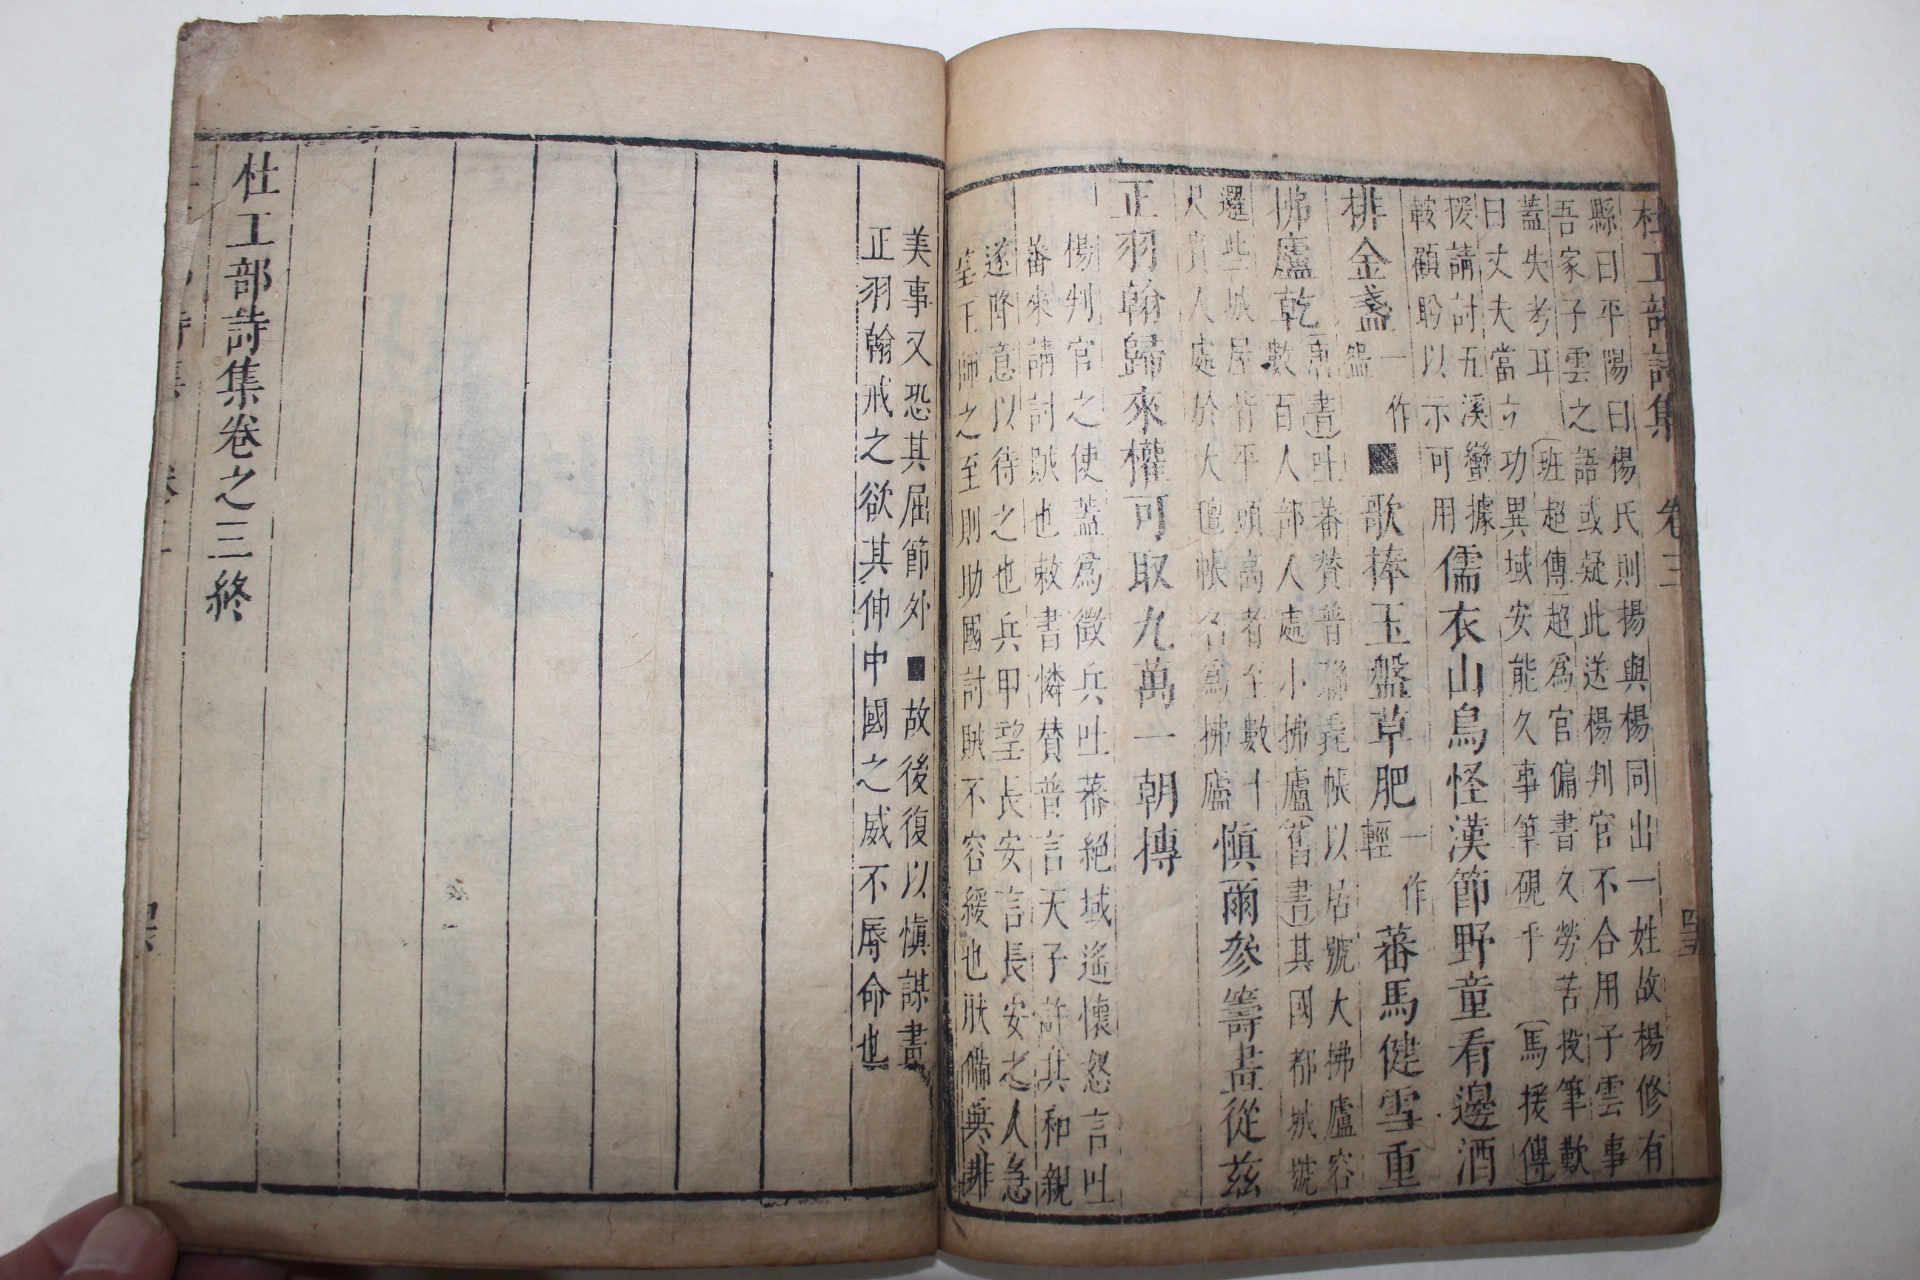 杜工部詩集 卷三
縣曰平陽曰楊氏則揚與楊同出一姓故楊修有
吾家子雲之語或疑此送楊判官不合用子雲事
蓋失考耳 (班超傳)超爲官傭書久勞苦投筆歎
曰丈夫當立功異域安能久事筆硯乎 (馬援傳)
援請討五溪蠻據
鞍顧盼以示可用
儒衣山鳥怪漢節野童看邊酒
排金盞
一作
盌
■歌捧玉盤草肥
一作
輕
蕃馬健雪重
拂廬乾
(唐書)吐蕃贊普聯毳帳以居號大拂廬容
數百人部人處小拂廬(舊書)其國都城號
邏些城屋皆平頭高者至數十
尺貴人處於大氊帳名爲拂廬
慎爾參籌畫從茲
正羽翰歸來權可取九萬一朝摶
楊判官之使蓋爲徵兵吐蕃絕域遙懷怒言吐
蕃來請討賊也敕書憐贊普言天子許其和親
遂降意以待之也兵甲望長安言長安之人急
望王師之至則助國討賊不容緩也
美事又恐其屈節外■故後復以慎謀畫
正羽翰戒之欲其伸中國之威不辱命也
杜工部詩集卷之三終